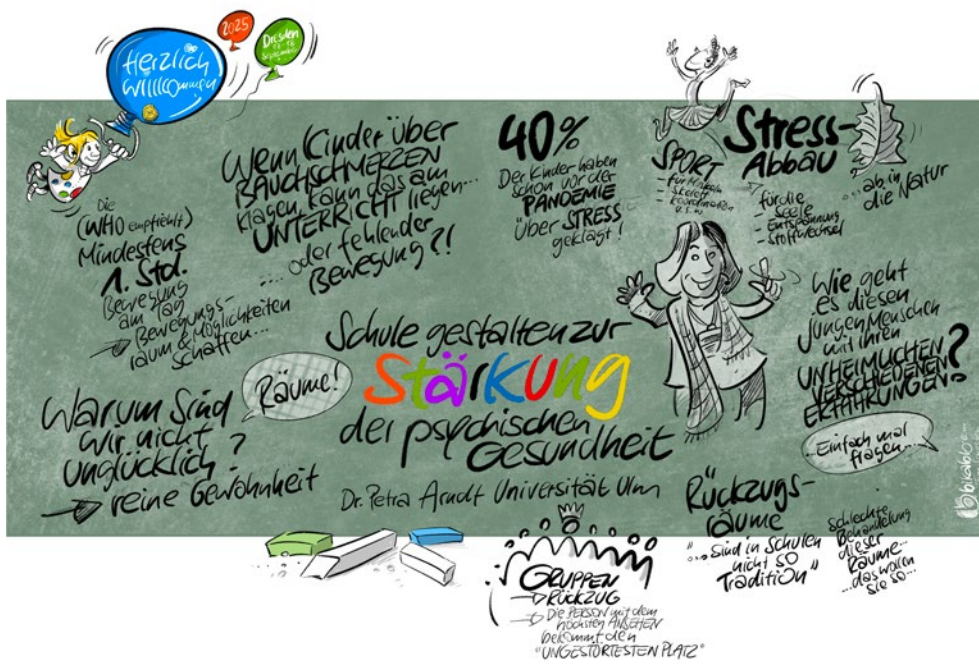 Herzlich
Willlkommen
2025
Dresden
September
Die
(WHO empfiehlt)
Mindestens
1. Std.
Bewegung
am Tag
→ Bewegungs-
raum & Möglichkeiten
schaffen...
Wenn Kinder über
BAUCHSCHMERZEN
klagen, kann das am
UNTERRICHT liegen...
.... oder fehlender
Bewegung?!
40%
Der Kinder haben
schon vor der
PANDEMIE
über STRESS
geklagt!
SPORT
für Muskeln
- Skelett
- Koordination
u.s.w.
Stress-
Abbau
für die
- Seele
- Entspannung
- Stoffwechsel
...ab in
die Natur
Wie geht
es diesen
jungen Menschen
mit ihren
UNHEIMLICHEN
VERSCHIEDENEN
ERFAHRUNGEN?
...Einfach mal
fragen...
Schule gestalten zur
Stärkung
der psychischen
Gesundheit
Dr. Petra Arndt Universität Ulm
Räume!
Warum sind
wir nicht
unglücklich?
→ reine Gewohnheit
Rückzugs-
räume
"...sind in Schulen
nicht so
Tradition"
Schlechte
Behandlung
dieser
Räume...
...das waren
sie so...
GRUPPEN
→ RÜCKZUG
→ Die PERSON mit dem
höchsten ANSEHEN
bekommt den
"UNGESTÖRTESTEN PLATZ"